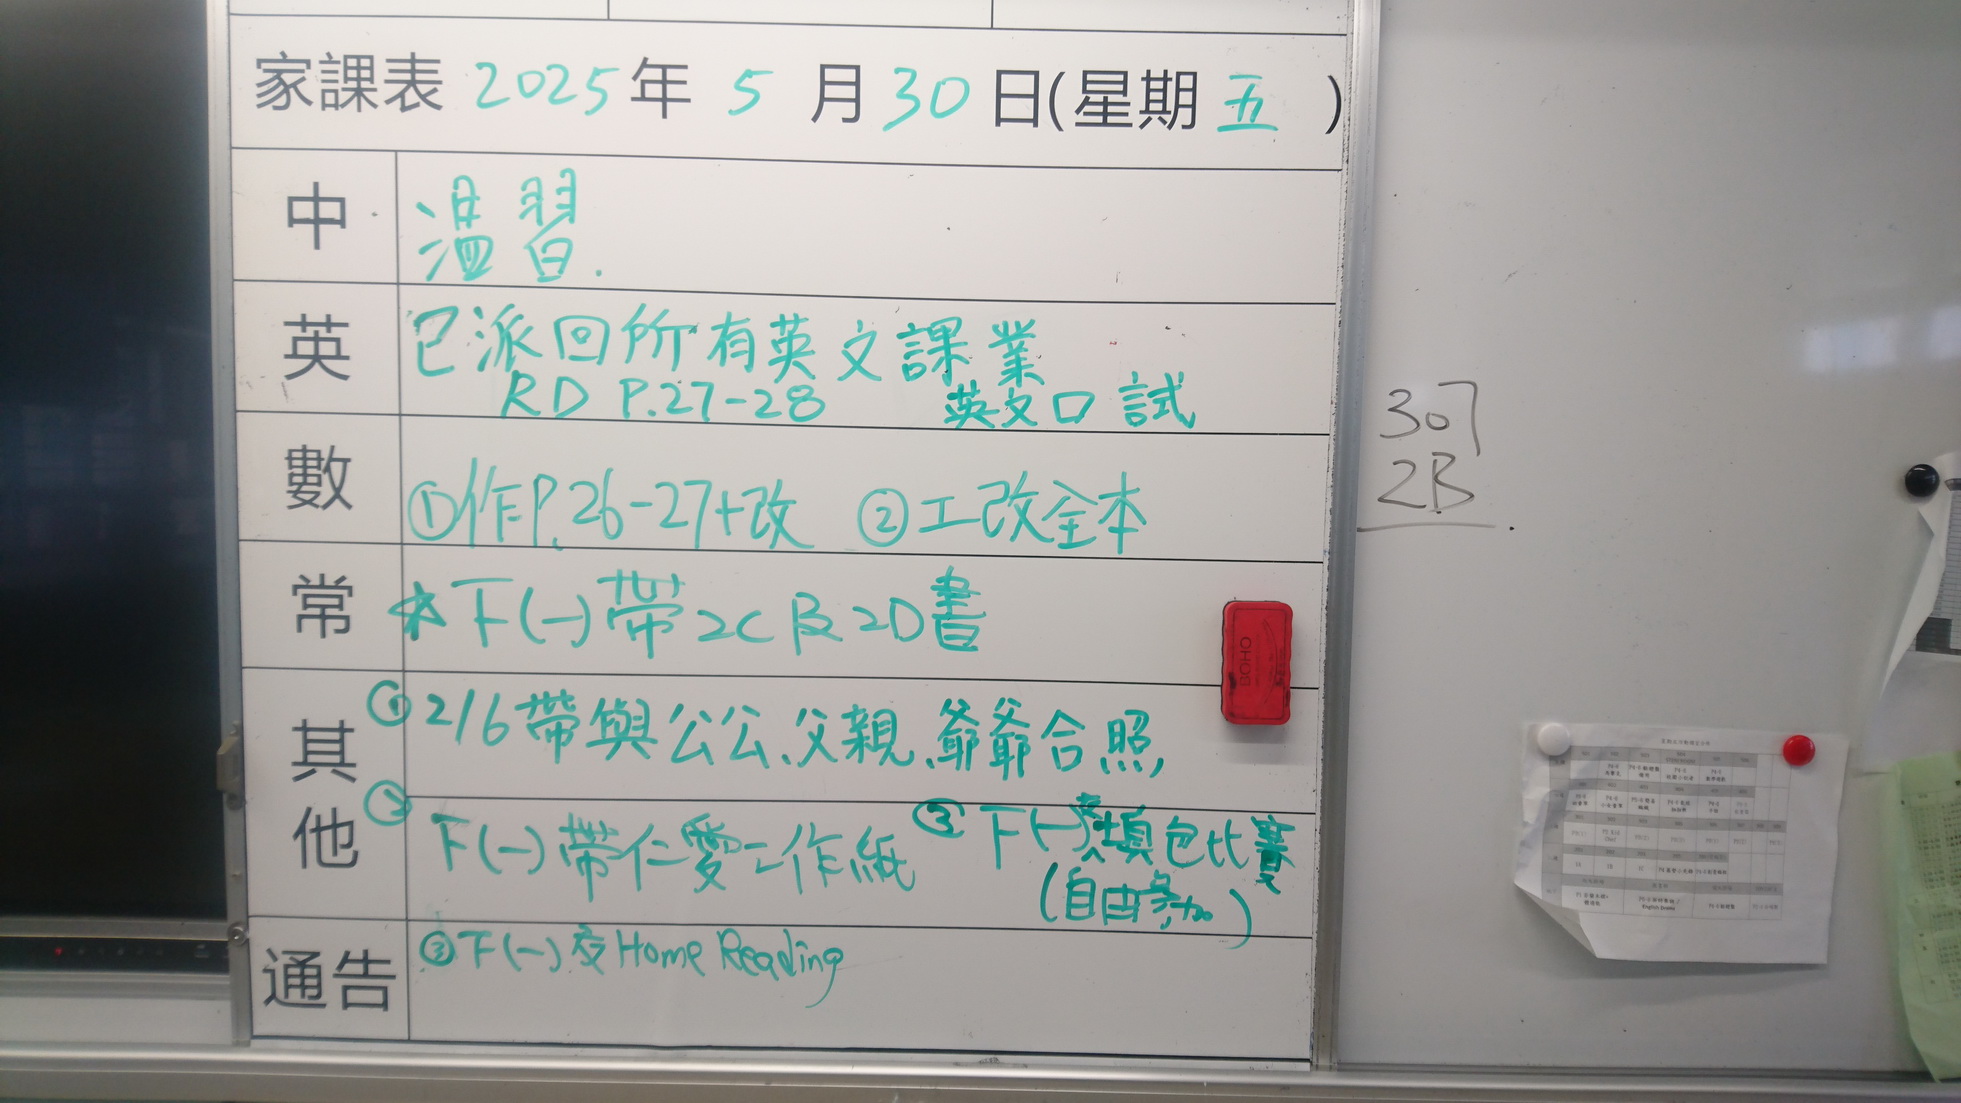 家課表 2025年 5 月 30 日(星期 五 )
中 溫習.
英 已派回所有英文課業
RD P.27-28 英文口試
數 ①作P.26-27+改 ②工改全本
常 *下(一)帶2C及2D書
其他 ①2/6帶與公公、父親、爺爺合照
② 下(一)帶仁愛二作紙 ③下(一)交填色比賽
(自由參加)
通告 ③下(一)交Home Reading
307
2B
BOHO